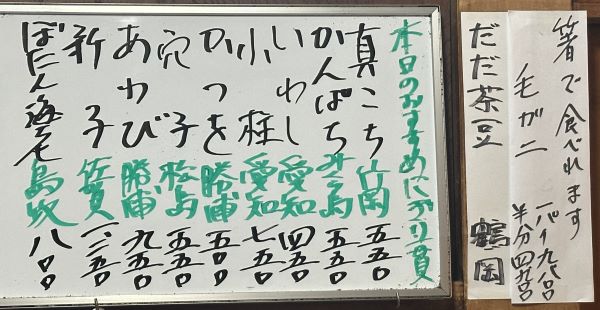 箸で食べれます
毛ガニ 一パイ九八〇
半分四九〇
だだ茶豆 鶴岡
本日のおすすめにぎり一貫
真こち 竹岡 五五〇
かんぱち 島 五五〇
いわし 愛知 四五〇
小柱 愛知 七五〇
かつを 勝浦 五〇〇
穴子 松島 五五〇
あわび 勝浦 九五〇
新子 佐賀 一、二五〇
ぼたん海老 鳥取 八〇〇